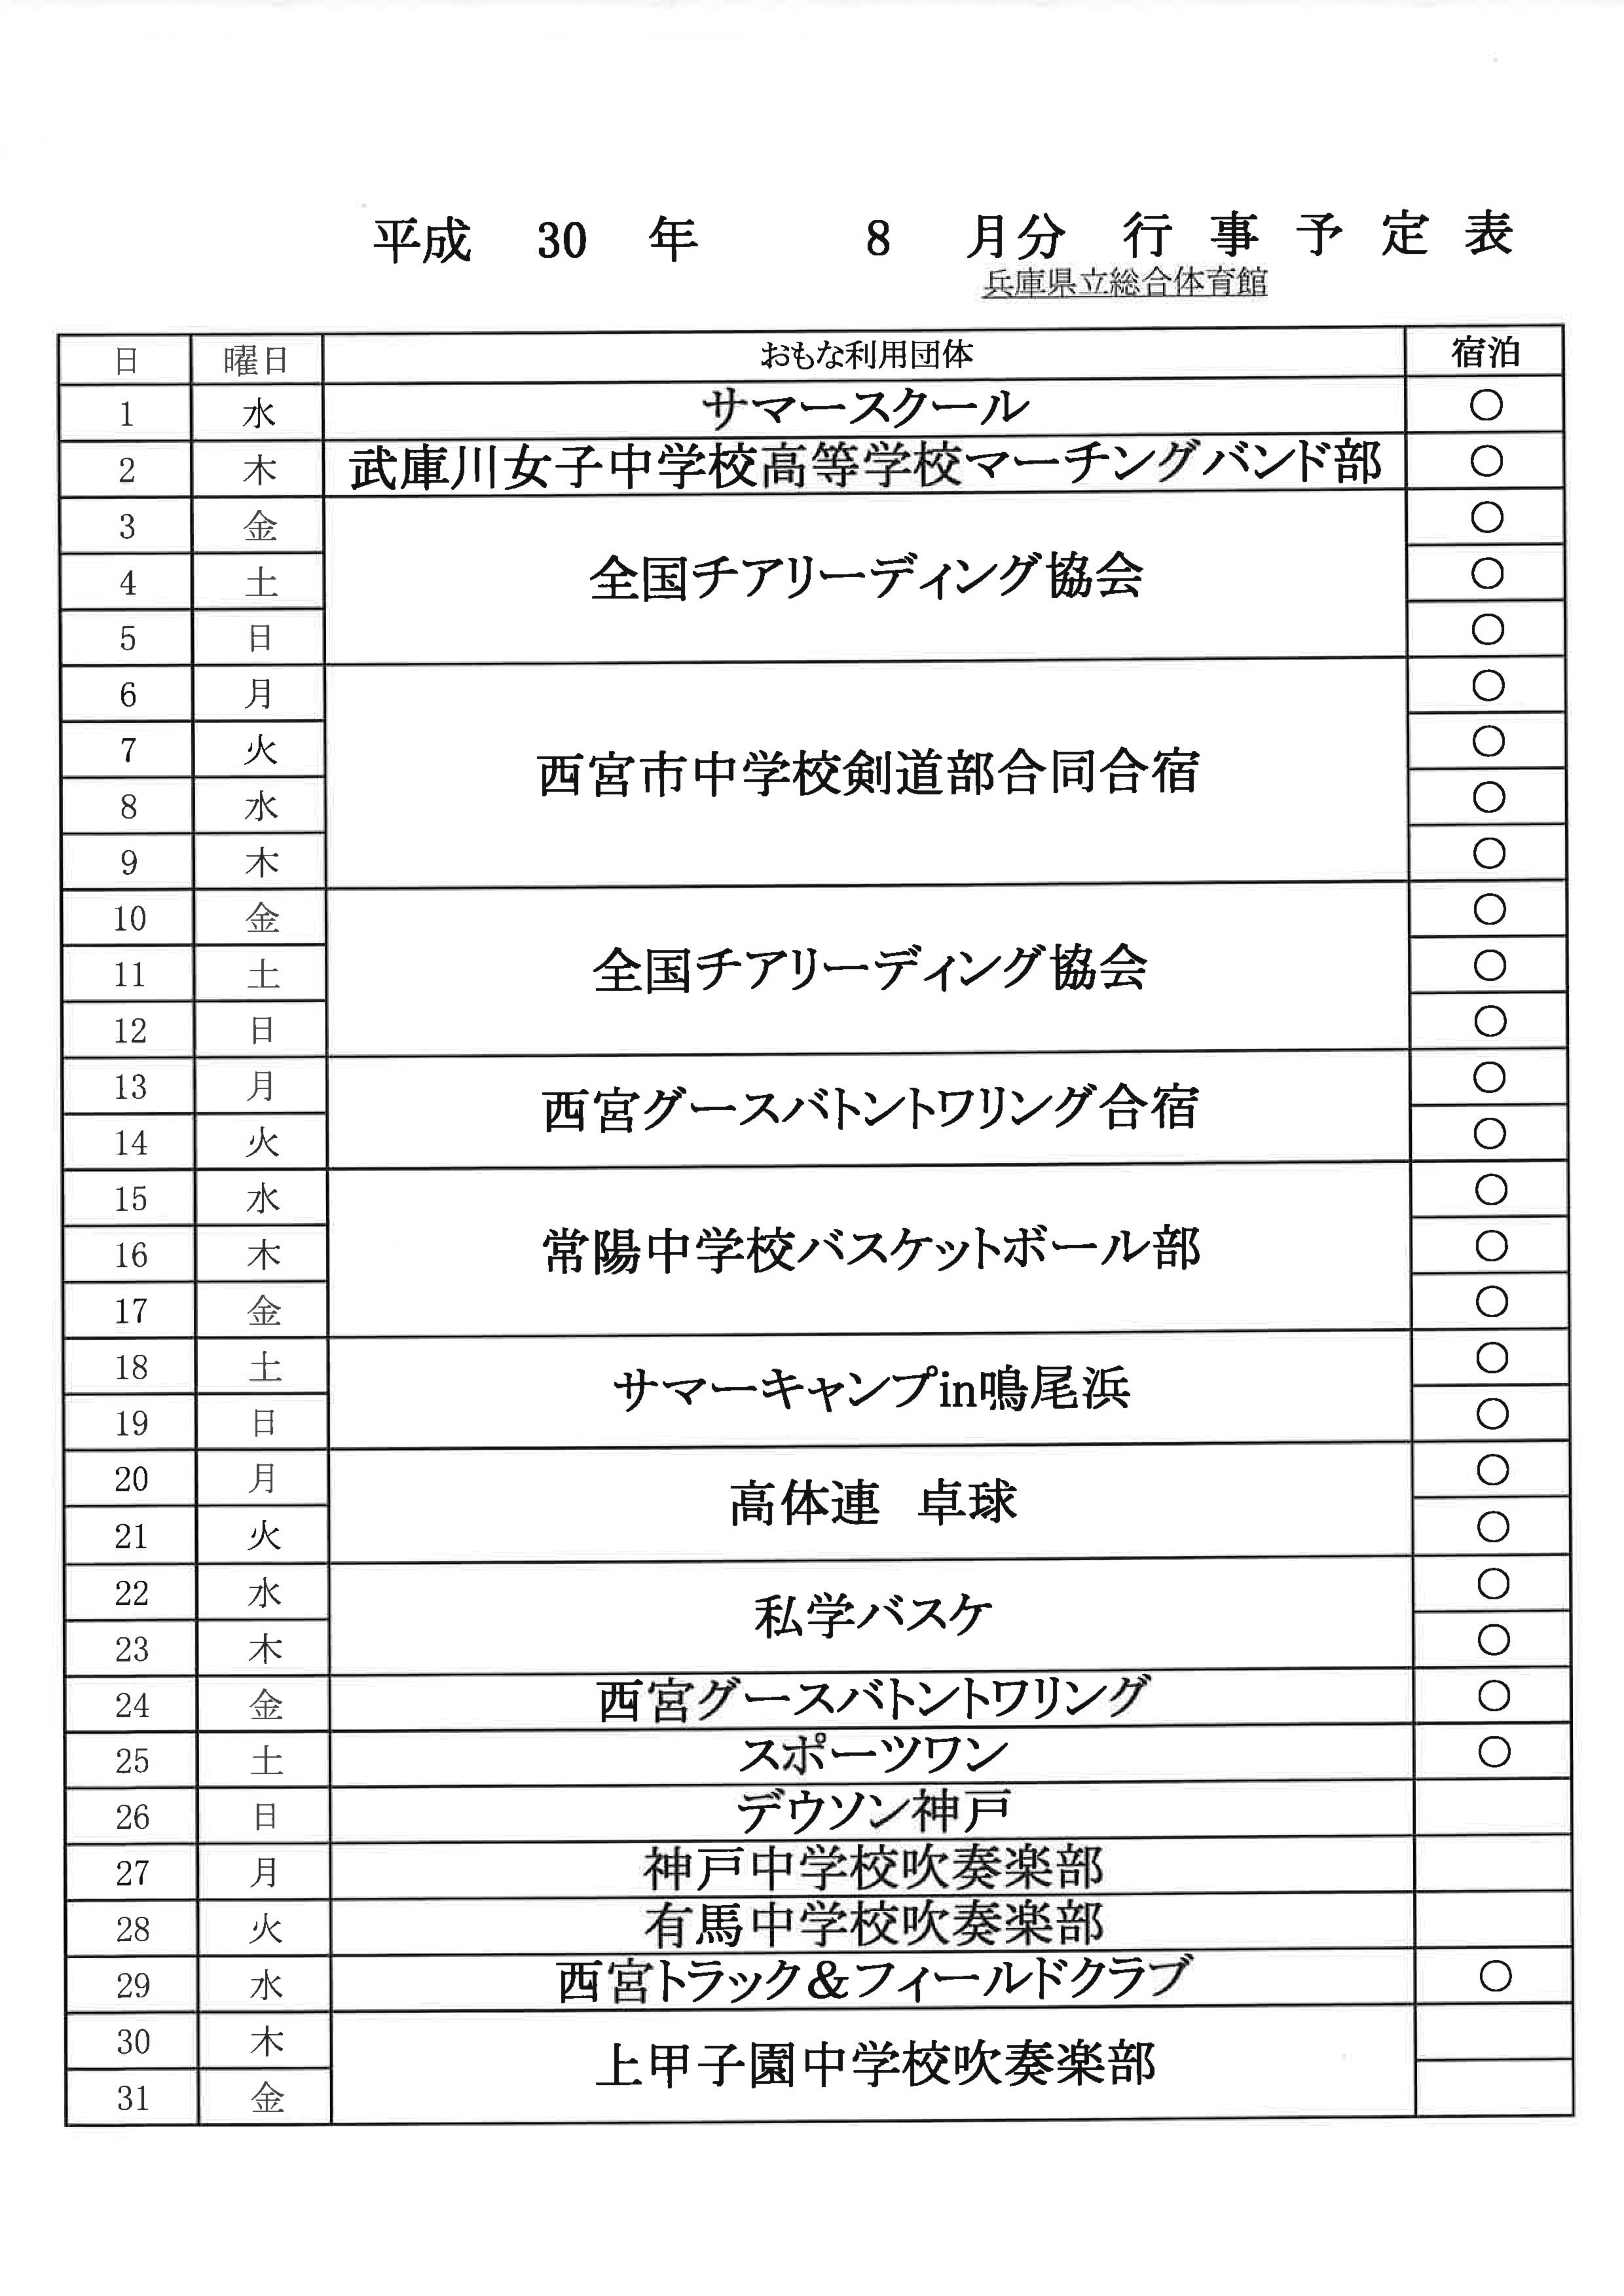 平成 30 年 8 月分 行事予定表
兵庫県立総合体育館
日 曜日 おもな利用団体 宿泊
1 水 サマースクール ○
2 木 武庫川女子中学校高等学校マーチングバンド部 ○
3 金 全国チアリーディング協会 ○
4 土 ○
5 日 ○
6 月 西宮市中学校剣道部合同合宿 ○
7 火 ○
8 水 ○
9 木 ○
10 金 全国チアリーディング協会 ○
11 土 ○
12 日 ○
13 月 西宮グースバトントワリング合宿 ○
14 火 ○
15 水 常陽中学校バスケットボール部 ○
16 木 ○
17 金 ○
18 土 サマーキャンプin鳴尾浜 ○
19 日 ○
20 月 高体連 卓球 ○
21 火 ○
22 水 私学バスケ ○
23 木 ○
24 金 西宮グースバトントワリング ○
25 土 スポーツワン ○
26 日 デウソン神戸
27 月 神戸中学校吹奏楽部
28 火 有馬中学校吹奏楽部
29 水 西宮トラック&フィールドクラブ ○
30 木 上甲子園中学校吹奏楽部
31 金